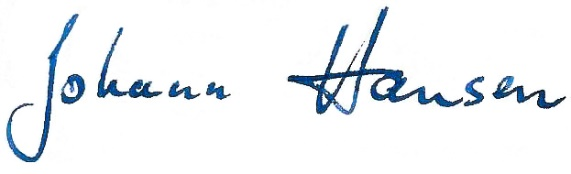 Johann Hansen